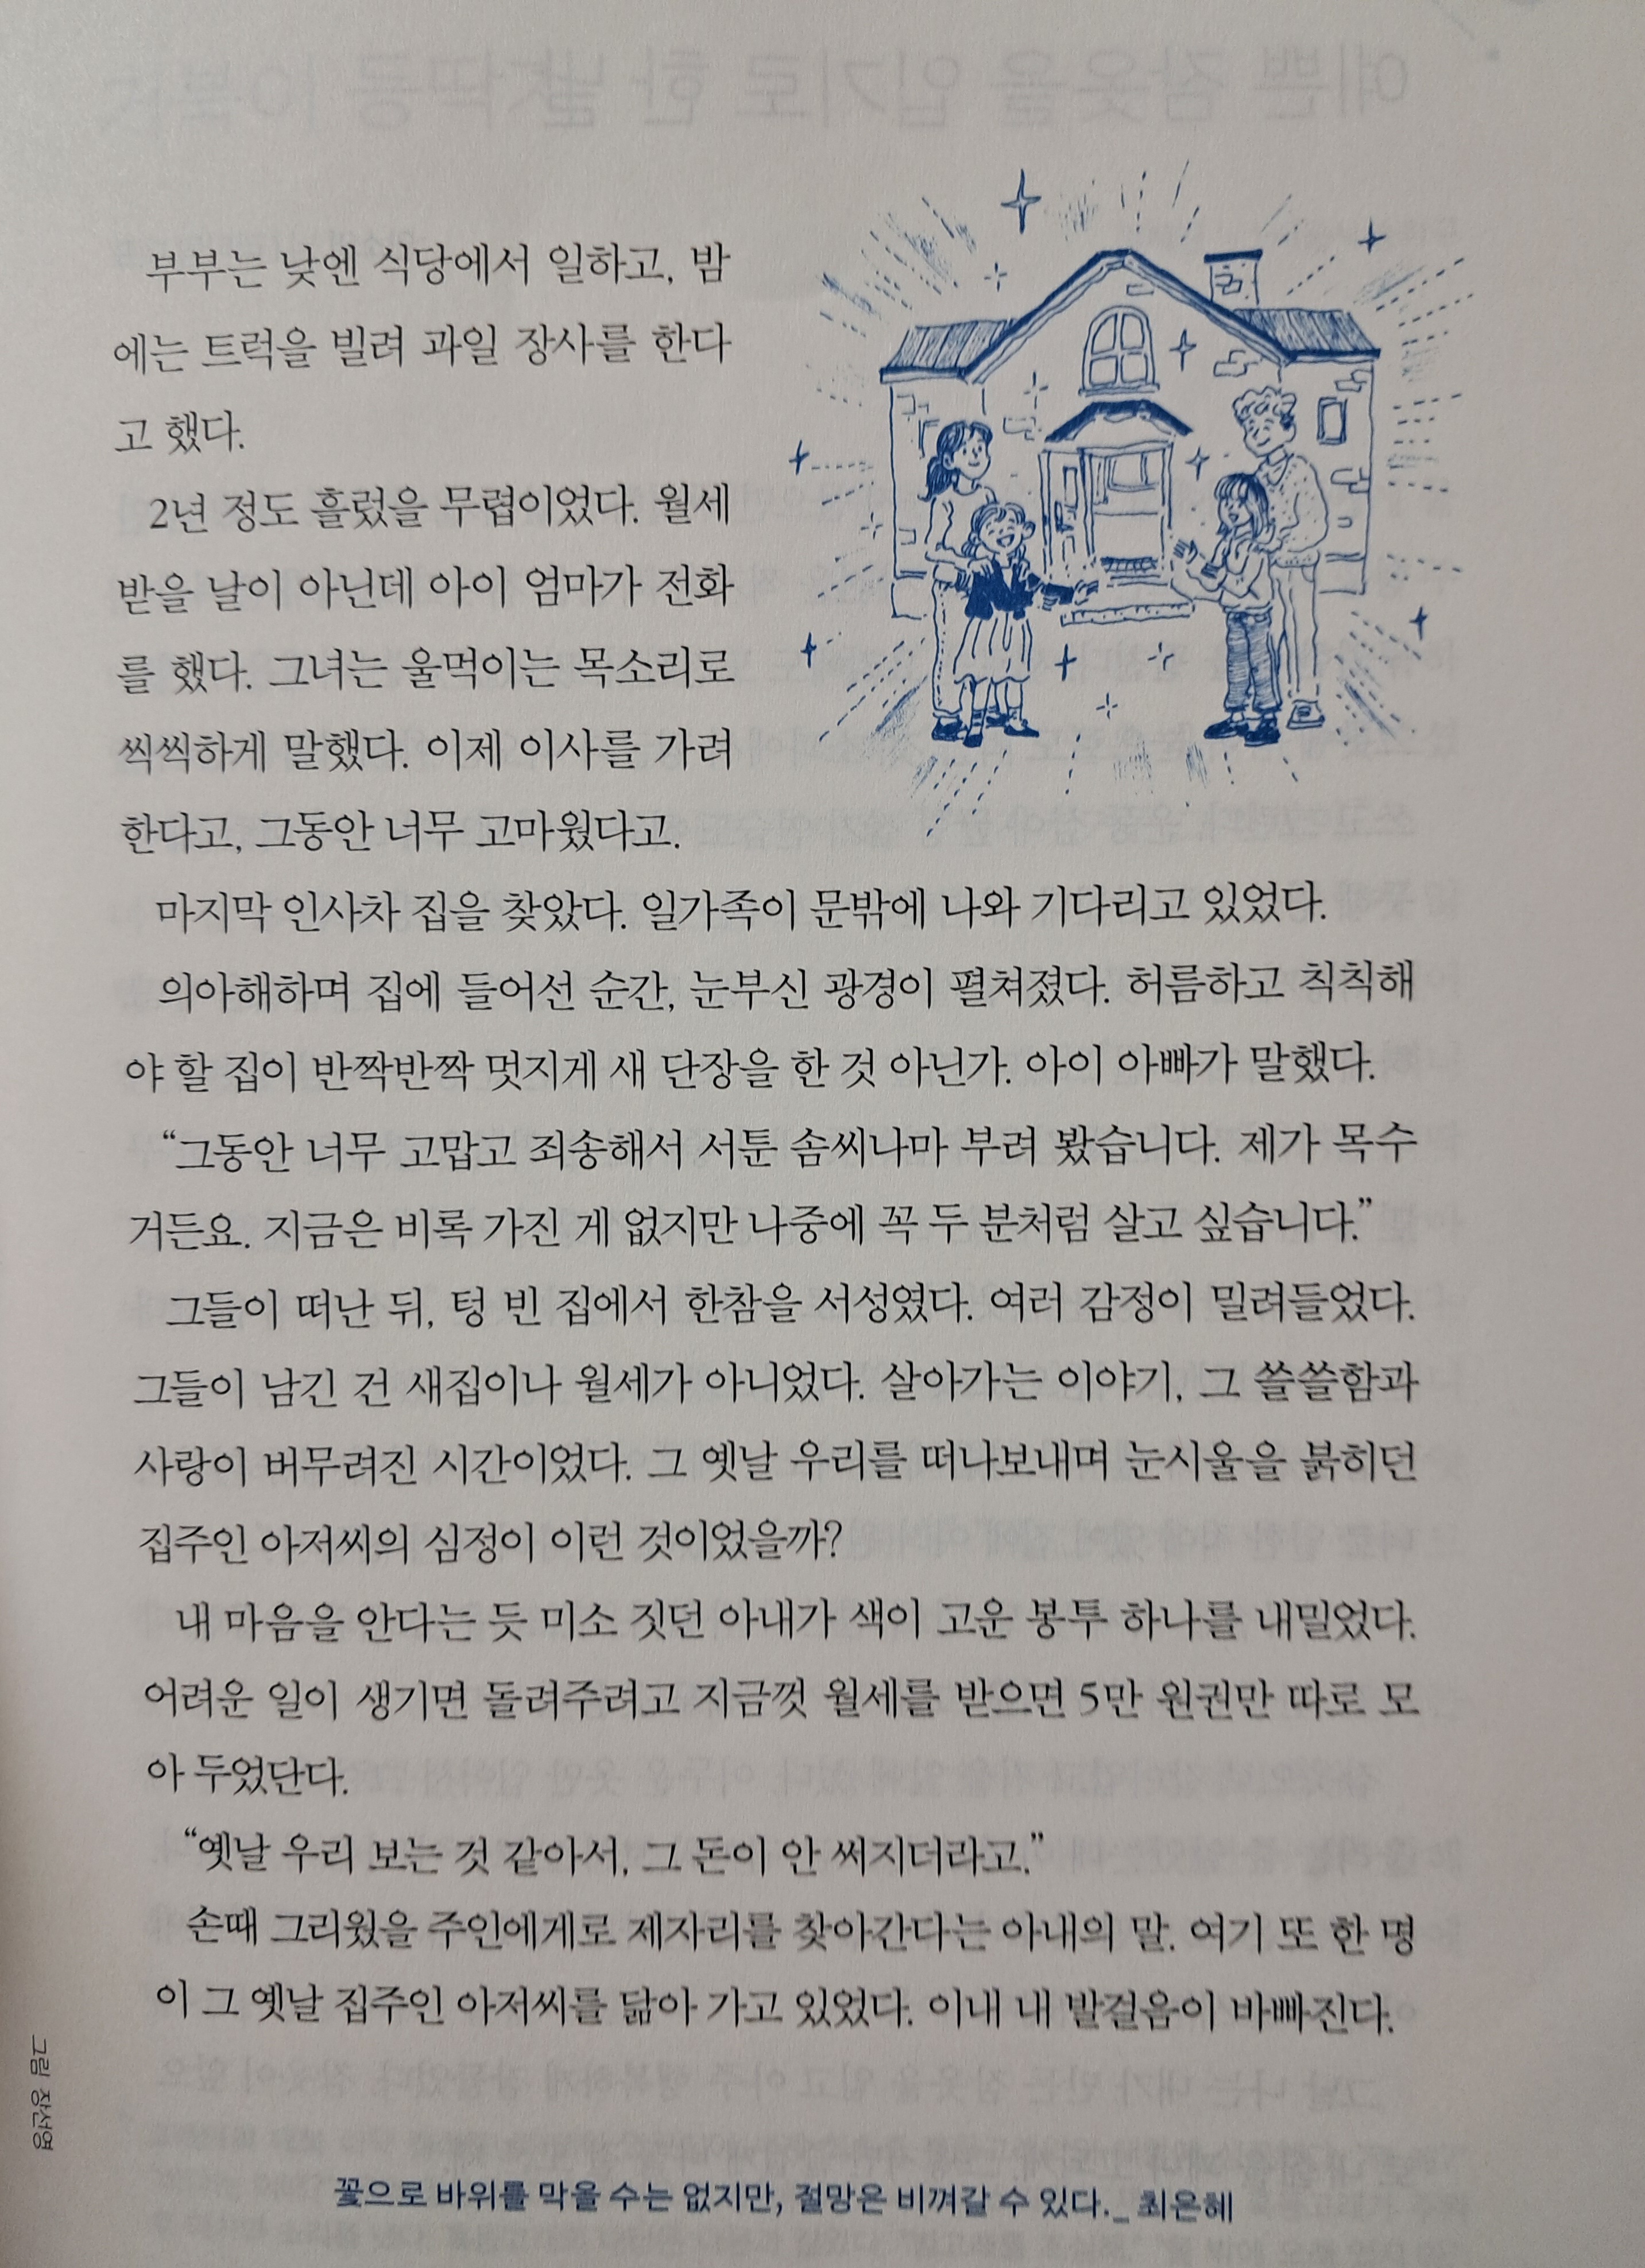 부부는 낮엔 식당에서 일하고, 밤
에는 트럭을 빌려 과일 장사를 한다
고 했다.
2년 정도 흘렀을 무렵이었다. 월세
받을 날이 아닌데 아이 엄마가 전화
를 했다. 그녀는 울먹이는 목소리로
씩씩하게 말했다. 이제 이사를 가려
한다고, 그동안 너무 고마웠다고.
마지막 인사차 집을 찾았다. 일가족이 문밖에 나와 기다리고 있었다.
의아해하며 집에 들어선 순간, 눈부신 광경이 펼쳐졌다. 허름하고 칙칙해
야 할 집이 반짝반짝 멋지게 새 단장을 한 것 아닌가. 아이 아빠가 말했다.
“그동안 너무 고맙고 죄송해서 서툰 솜씨나마 부려 봤습니다. 제가 목수
거든요. 지금은 비록 가진 게 없지만 나중에 꼭 두 분처럼 살고 싶습니다.”
그들이 떠난 뒤, 텅 빈 집에서 한참을 서성였다. 여러 감정이 밀려들었다.
그들이 남긴 건 새집이나 월세가 아니었다. 살아가는 이야기, 그 쓸쓸함과
사랑이 버무려진 시간이었다. 그 옛날 우리를 떠나보내며 눈시울을 붉히던
집주인 아저씨의 심정이 이런 것이었을까?
내 마음을 안다는 듯 미소 짓던 아내가 색이 고운 봉투 하나를 내밀었다.
어려운 일이 생기면 돌려주려고 지금껏 월세를 받으면 5만 원권만 따로 모
아 두었단다.
“옛날 우리 보는 것 같아서, 그 돈이 안 써지더라고.”
손때 그리웠을 주인에게로 제자리를 찾아간다는 아내의 말. 여기 또 한 명
이 그 옛날 집주인 아저씨를 닮아 가고 있었다. 이내 내 발걸음이 바빠진다.
그림 장선영
꽃으로 바위를 막을 수는 없지만, 절망은 비껴갈 수 있다._ 최은혜